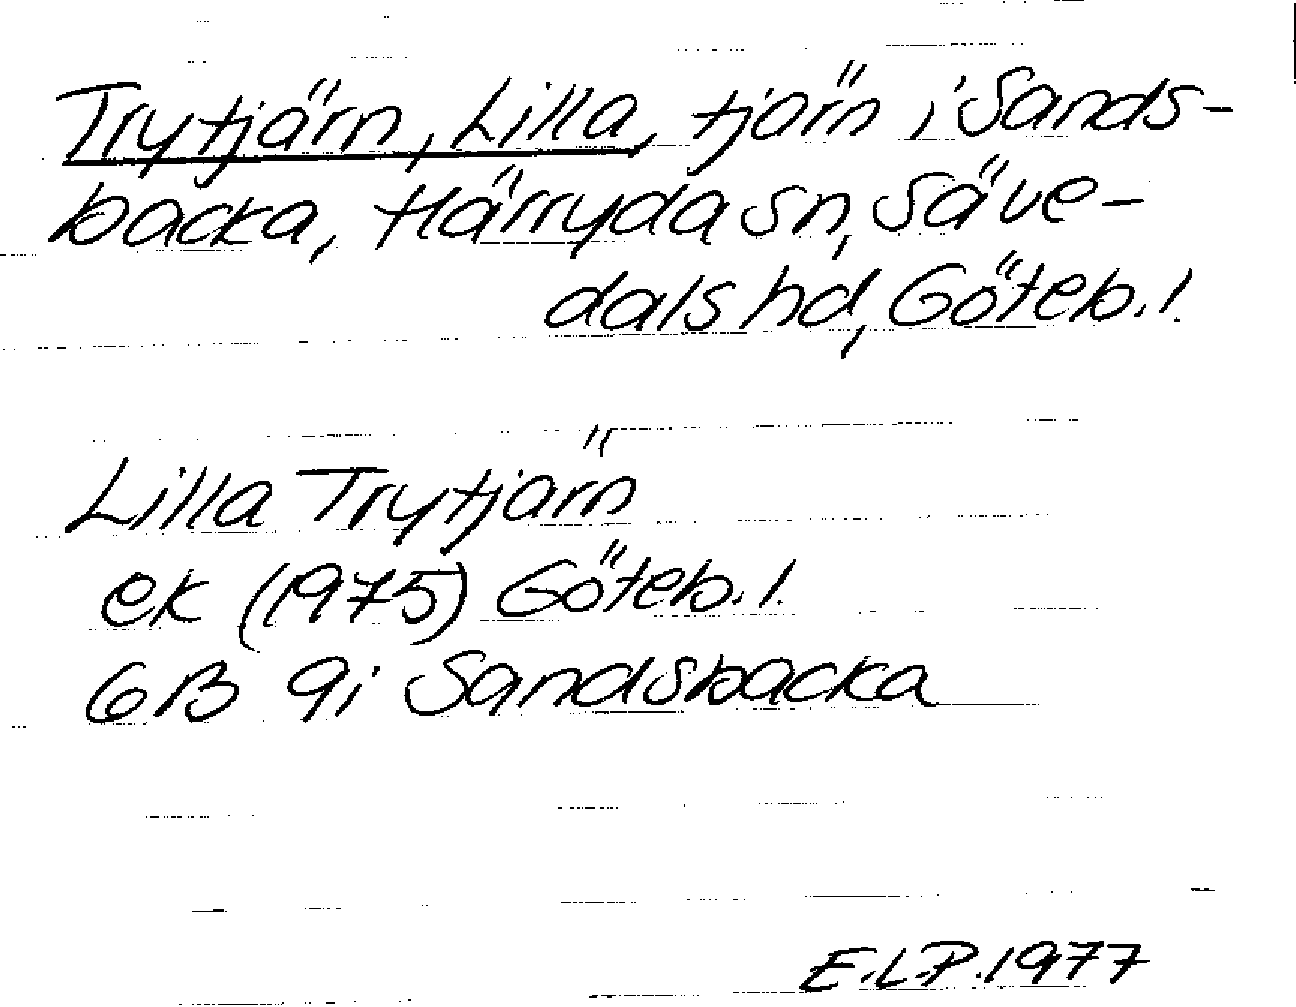 Trytjärn, Lilla, tjärn i Sands-
backa, Härryda sn, Säve-
dals hd, Göteb. l.
Lilla Trytjärn
ek (1975) Göteb. l.
6B 9i Sandsbacka
E.L.P. 1977